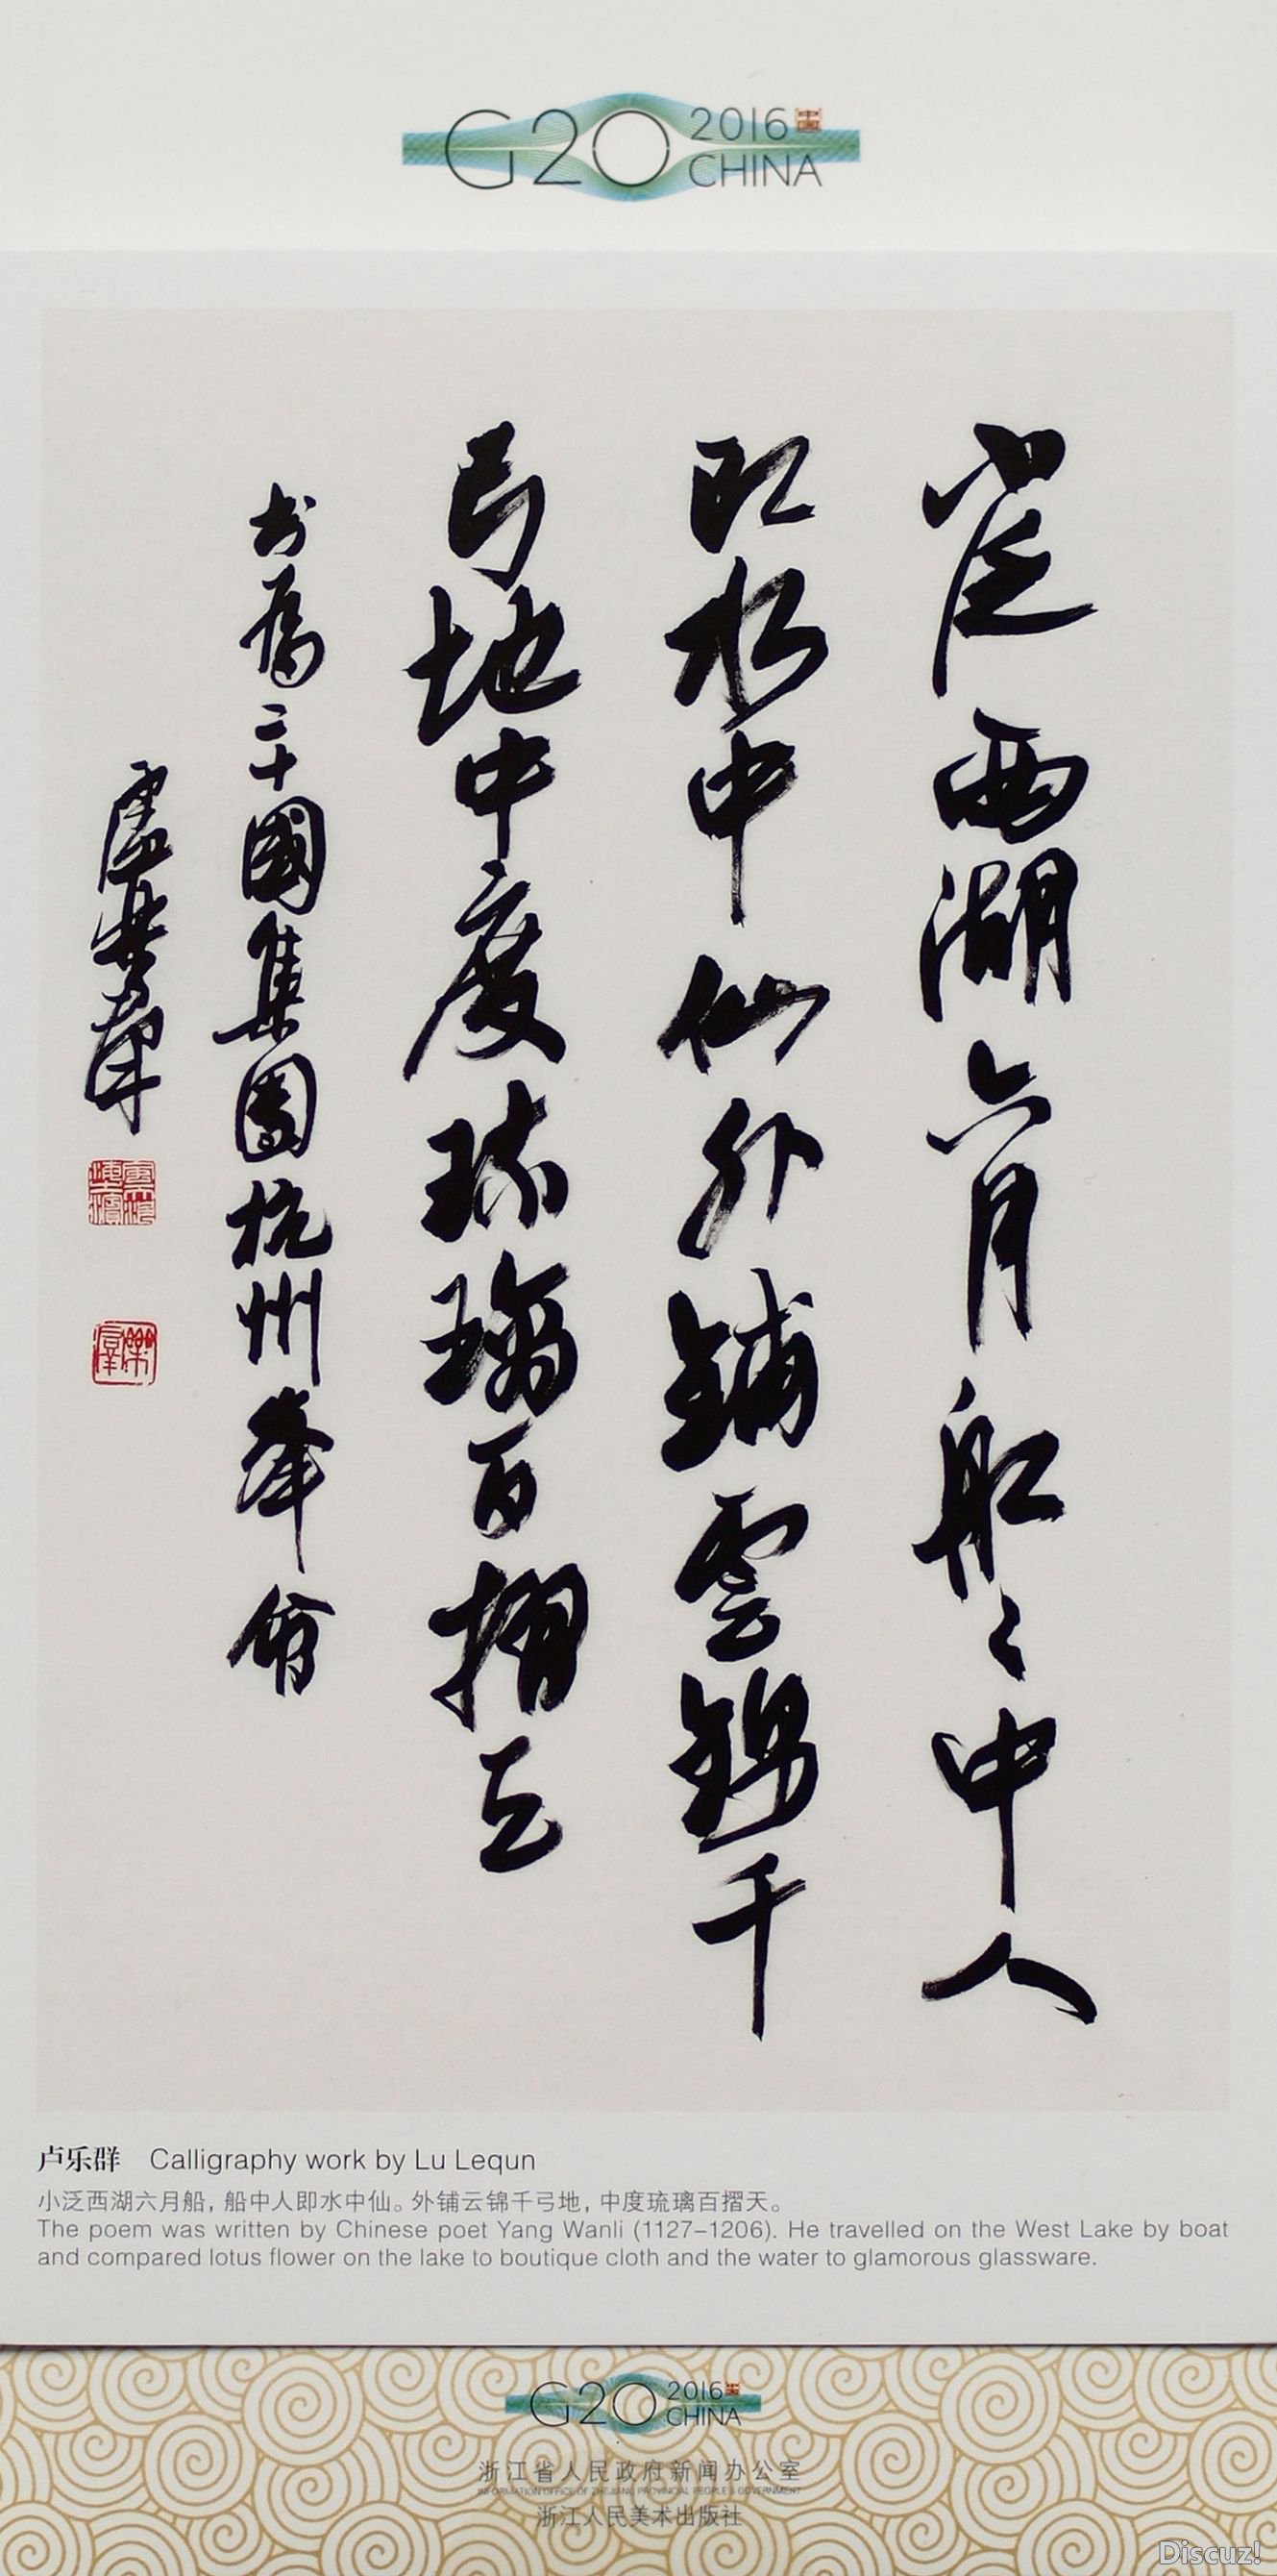 G20 2016 CHINA
小泛西湖六月船々中人
即水中仙外鋪雲錦千
弓地中度琉璃百摺天
书為二十國集團杭州峯會
盧樂群
卢乐群 Calligraphy work by Lu Lequn
小泛西湖六月船，船中人即水中仙。外铺云锦千弓地，中度琉璃百摺天。
The poem was written by Chinese poet Yang Wanli (1127–1206). He travelled on the West Lake by boat
and compared lotus flower on the lake to boutique cloth and the water to glamorous glassware.
G20 2016 CHINA
浙江省人民政府新闻办公室
INFORMATION OFFICE OF ZHEJIANG PROVINCIAL PEOPLE'S GOVERNMENT
浙江人民美术出版社
Discuz!